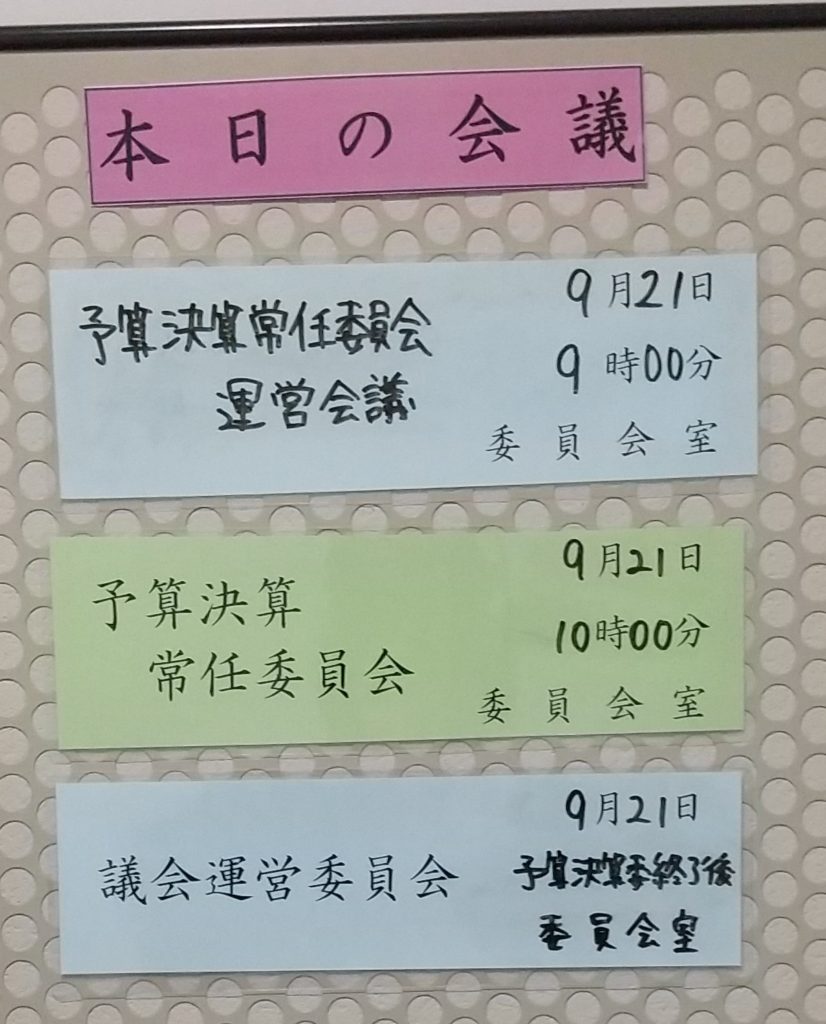 本日の会議
予算決算常任委員会
運営会議
9月21日
9時00分
委員会室
予算決算
常任委員会
9月21日
10時00分
委員会室
議会運営委員会
9月21日
予算決算委終了後
委員会室